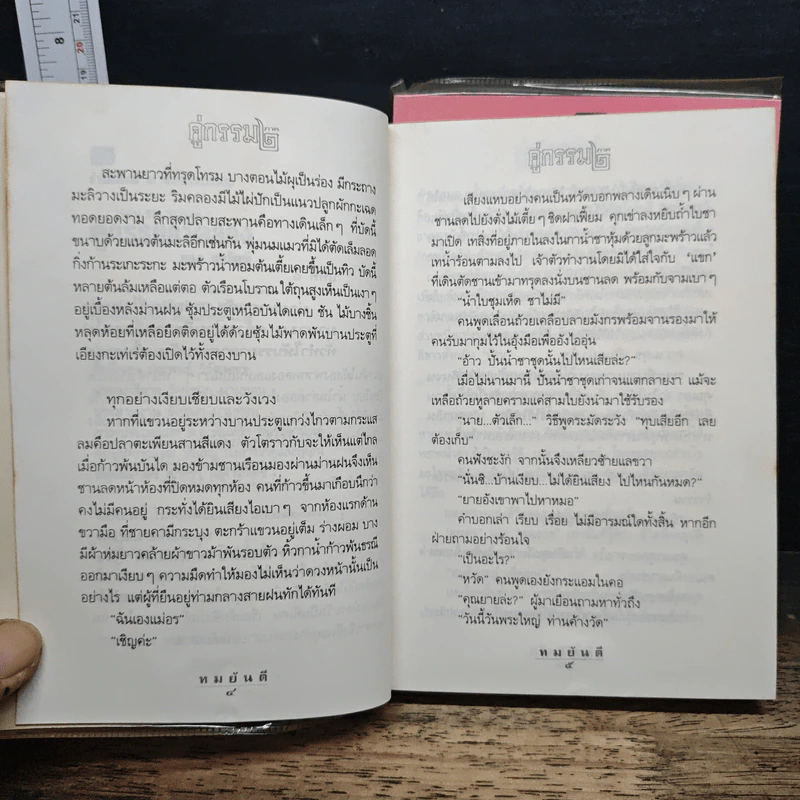 8
21
20
19
คู่กรรม ๒
สะพานยาวที่ทรุดโทรม บางตอนไม้ผุเป็นร่อง มีกระถาง
มะลิวางเป็นระยะ ริมคลองมีไม้ไผ่ปักเป็นแนวปลูกผักกะเฉด
ทอดยอดงาม ลึกสุดปลายสะพานคือทางเดินเล็กๆ ที่บัดนี้
ขนาบด้วยแนวต้นมะลิอีกเช่นกัน พุ่มนมแมวที่มิได้ตัดเล็มลอด
กิ่งก้านระเกะระกะ มะพร้าวน้ำหอมต้นเตี้ยเคยขึ้นเป็นทิว บัดนี้
หลายต้นล้มเหลือแต่ตอ ตัวเรือนโบราณใต้ถุนสูงเห็นเป็นเงาๆ
อยู่เบื้องหลังม่านฝน ซุ้มประตูเหนือบันไดแคบ ชัน ไม้บางชิ้น
หลุดห้อยที่เหลือยึดติดอยู่ได้ด้วยซุ้มไม้พาดพันบานประตูที่
เอียงกะเท่เร่ต้องเปิดไว้ทั้งสองบาน
ทุกอย่างเงียบเชียบและวังเวง
หากที่แขวนอยู่ระหว่างบานประตูแกว่งไกวตามกระแส
ลมคือปลาตะเพียนสานสีแดง ตัวโตราวกับจะให้เห็นแต่ไกล
เมื่อก้าวพ้นบันได มองข้ามชานเรือนมองผ่านม่านฝนจึงเห็น
ชานลดหน้าห้องที่ปิดหมดทุกห้อง คนที่ก้าวขึ้นมาเกือบนึกว่า
คงไม่มีคนอยู่ กระทั่งได้ยินเสียงไอเบาๆ จากห้องแรกด้าน
ขวามือ ที่ชายคามีกระบุง ตะกร้าแขวนอยู่เต็ม ร่างผอม บาง
มีผ้าห่มยาวคล้ายผ้าขาวม้าพันรอบตัว หิ้วกาน้ำก้าวพ้นธรณี
ออกมาเงียบๆ ความมืดทำให้มองไม่เห็นว่าดวงหน้านั้นเป็น
อย่างไร แต่ผู้ที่ยืนอยู่ท่ามกลางสายฝนทักได้ทันที
“ฉันเองแม่อร”
“เชิญค่ะ”
ทมยันตี
๔
คู่กรรม ๒
เสียงแหบอย่างคนเป็นหวัดบอกพลางเดินเนิบๆ ผ่าน
ชานลดไปยังตั่งไม้เตี้ยๆ ชิดฝาเฟี้ยม คุกเข่าลงหยิบถ้ำใบชา
มาเปิด เทสิ่งที่อยู่ภายในลงในกาน้ำชาหุ้มด้วยลูกมะพร้าวแล้ว
เทน้ำร้อนตามลงไป เจ้าตัวทำงานโดยมิได้ใส่ใจกับ ‘แขก’
ที่เดินตัดชานเข้ามาทรุดลงนั่งบนชานลด พร้อมกับจามเบาๆ
“น้ำใบชุมเห็ด ชาไม่มี”
คนพูดเลื่อนถ้วยเคลือบลายมังกรพร้อมจานรองมาให้
คนรับมากุมไว้ในอุ้งมือเพื่ออังไออุ่น
“อ้าว ปั้นน้ำชาชุดนั้นไปไหนเสียล่ะ?”
เมื่อไม่นานมานี้ ปั้นน้ำชาชุดเก่าจนแตกลายงา แม้จะ
เหลือถ้วยหูลายครามแค่สามใบยังนำมาใช้รับรอง
“นาย...ตัวเล็ก...” วิธีพูดระมัดระวัง “ทุบเสียอีก เลย
ต้องเก็บ”
คนฟังชะงัก จากนั้นจึงเหลียวซ้ายแลขวา
“นั่นซิ...บ้านเงียบ...ไม่ได้ยินเสียง ไปไหนกันหมด?”
“ยายอังเขาพาไปหาหมอ”
คำบอกเล่า เรียบ เรื่อย ไม่มีอารมณ์ใดทั้งสิ้น หากอีก
ฝ่ายถามอย่างร้อนใจ
“เป็นอะไร?”
“หวัด” คนพูดเองยังกระแอมในคอ
“คุณยายล่ะ?” ผู้มาเยือนถามหาทั่วถึง
“วันนี้วันพระใหญ่ ท่านค้างวัด”
ทมยันตี
๕